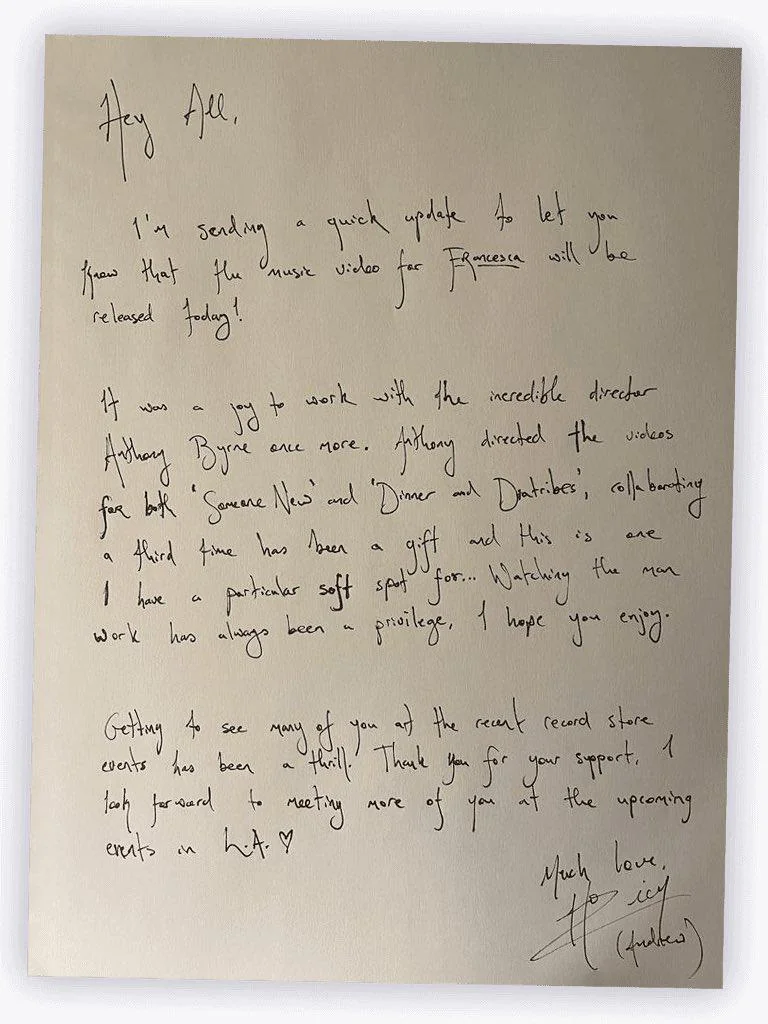 Hey All,
I'm sending a quick update to let you
know that the music video for Francesca will be
released today!
It was a joy to work with the incredible director
Anthony Byrne once more. Anthony directed the videos
for both 'Someone New' and 'Dinner and Diatribes', collaborating
a third time has been a gift and this is one
I have a particular soft spot for... Watching the man
work has always been a privilege, I hope you enjoy.
Getting to see many of you at the recent record store
events has been a thrill. Thank you for your support, I
look forward to meeting more of you at the upcoming
events in L.A. ♡
Much love,
Hozier
(Andrew)